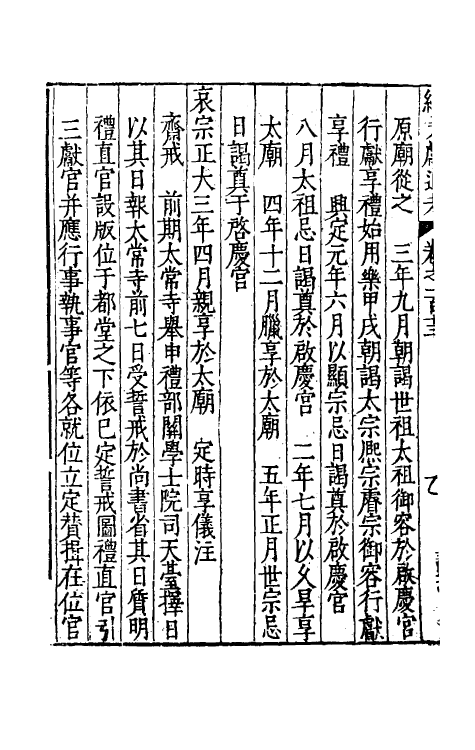 原廟從之　三年九月朝謁世祖太祖御容於啟慶宮
行獻享禮始用樂甲戌朝謁太宗熈宗睿宗御容行獻
享禮　興定元年六月以顯宗忌日謁奠於啟慶宮
八月太祖忌日謁奠於啟慶宮　二年七月以久旱享
太廟　四年十二月臘享於太廟　五年正月世宗忌
日謁奠于啓慶宮
哀宗正大三年四月親享於太廟　定時享儀注
齋戒　前期太常寺舉申禮部關學士院司天臺擇日
以其日報太常寺前七日受誓戒於尚書省其日質明
禮直官設版位于都堂之下依已定誓戒圖禮直官引
三獻官并應行事執事官等各就位立定贊揖在位官